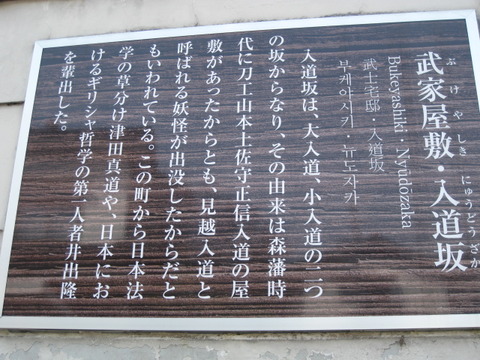 武家屋敷・入道坂
ぶけやしき にゅうどうざか
Bukeyashiki・Nyūdōzaka
武士宅邸・入道坂
부케야시키・뉴도자카
入道坂は、大入道、小入道の二つ
の坂からなり、その由来は森藩時
代に刀工山本土佐守正信入道の屋
敷があったからとも、見越入道と
呼ばれる妖怪が出没したからだと
もいわれている。この町から日本法
学の草分け津田真道や、日本にお
けるギリシャ哲学の第一人者井出隆
を輩出した。